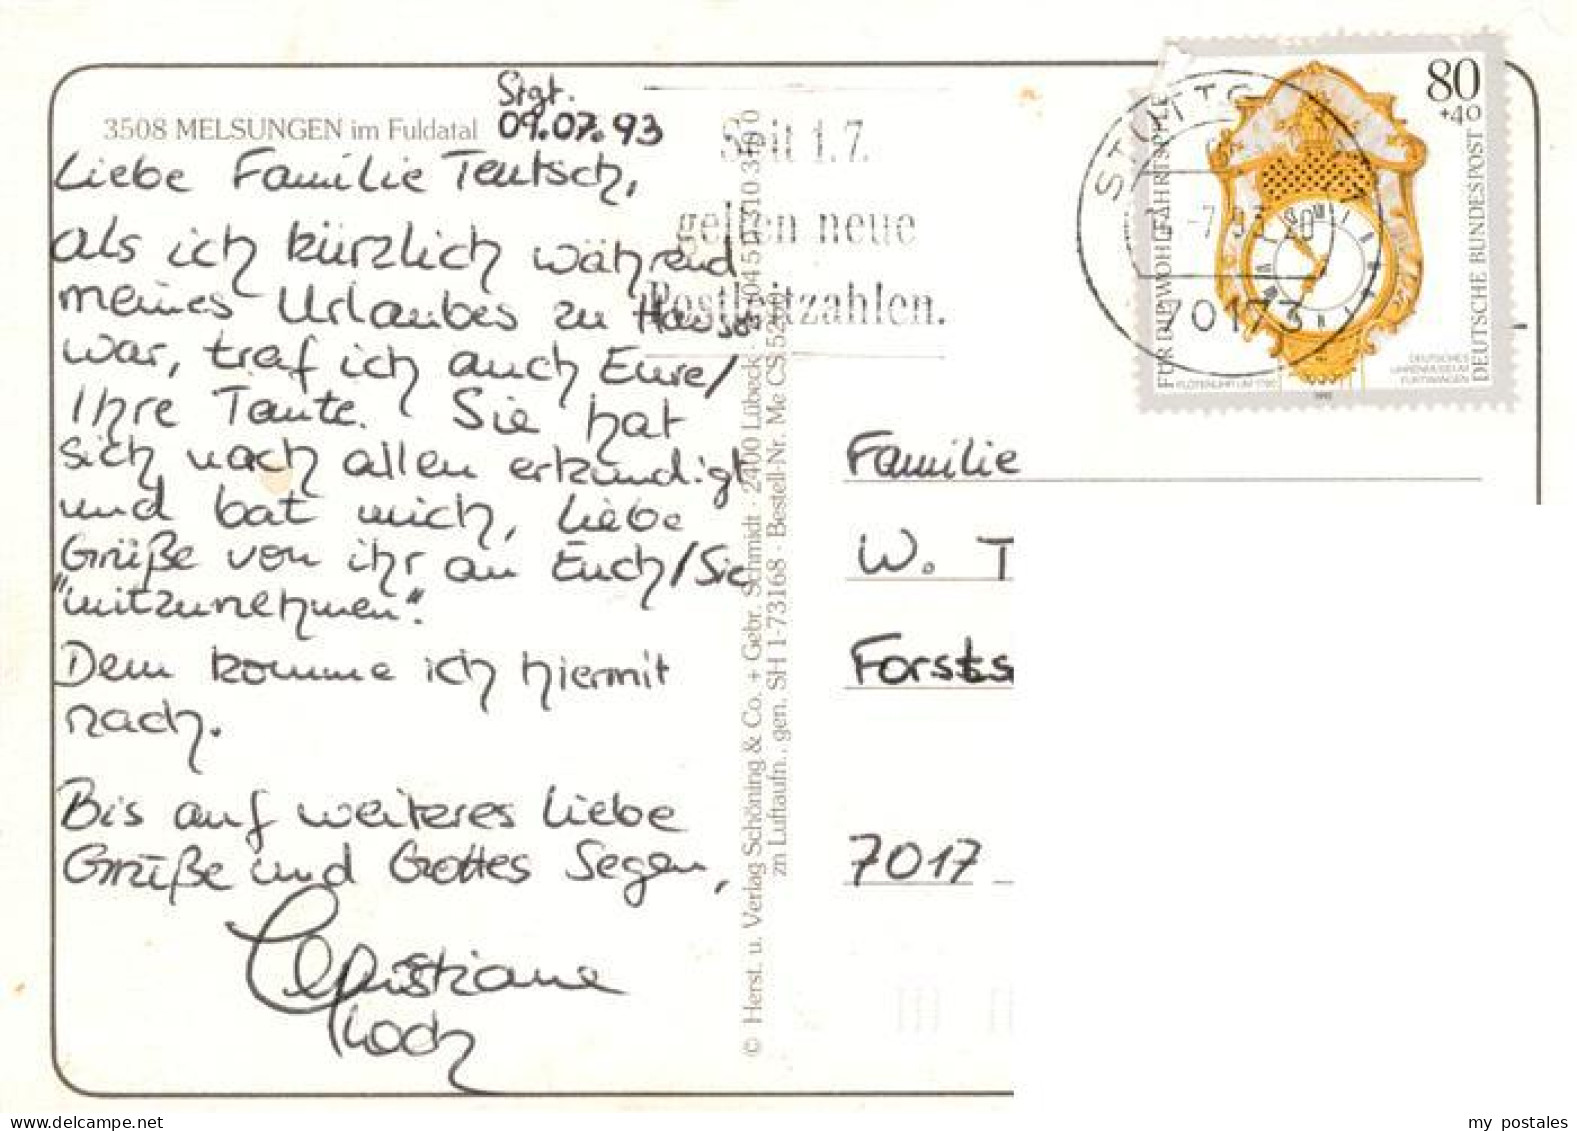 3508 MELSUNGEN im Fuldatal
Stgt.
09.07.93
Liebe Familie Teutsch,
als ich kürzlich während
meines Urlaubes zu Hause
war, traf ich auch Eure/
Ihre Tante. Sie hat
sich nach allen erkundigt
und bat mich, liebe
Grüße von ihr an Euch/Sie
"mitzunehmen".
Dem komme ich hiermit
nach.
Bis auf weiteres liebe
Grüße und Gottes Segen,
Christiane
Koch
© Herst. u. Verlag Schöning & Co. + Gebr. Schmidt · 2400 Lübeck
zn Luftaufn., gen. SH 1-73168 · Bestell-Nr. Me CS
Seit 1.7.
gelten neue
Postleitzahlen.
80
+40
FÜR DIE WOHLFAHRTSPFLEGE
DEUTSCHE BUNDESPOST
DEUTSCHES
UHRENMUSEUM
FURTWANGEN
FLÖTENUHR UM 1790
1992
70173
Familie
W. T
Forsts
7017
my postales